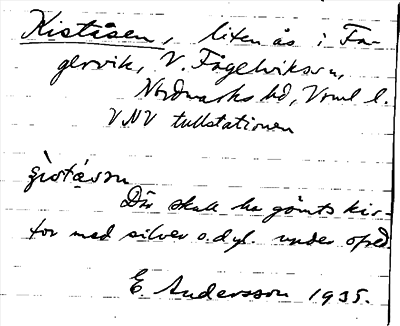 Kiståsen, liten ås i Få-
gelvik, V. Fågelviks sn,
Nordmarks hd, Vrml l.
VNV tullstationen
Där skall ha gömts kis-
tor med silver o. dyl. under ofred
E. Andersson 1935.